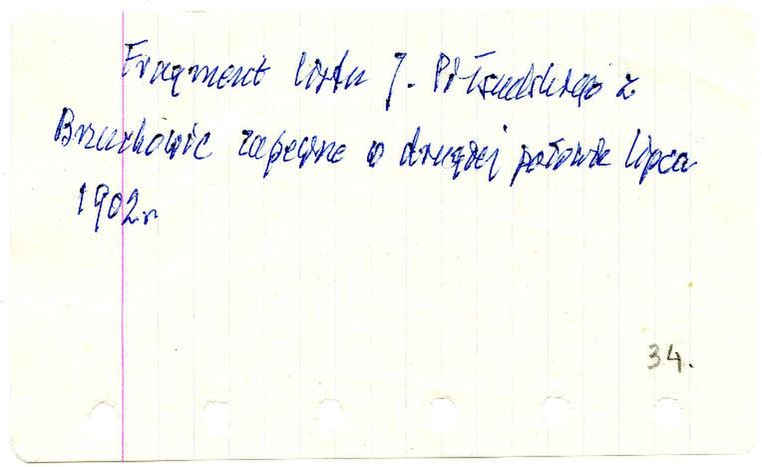 Fragment listu J. Piłsudskiego z
Brzuchowic zapewne w drugiej połowie lipca
1902r
34.